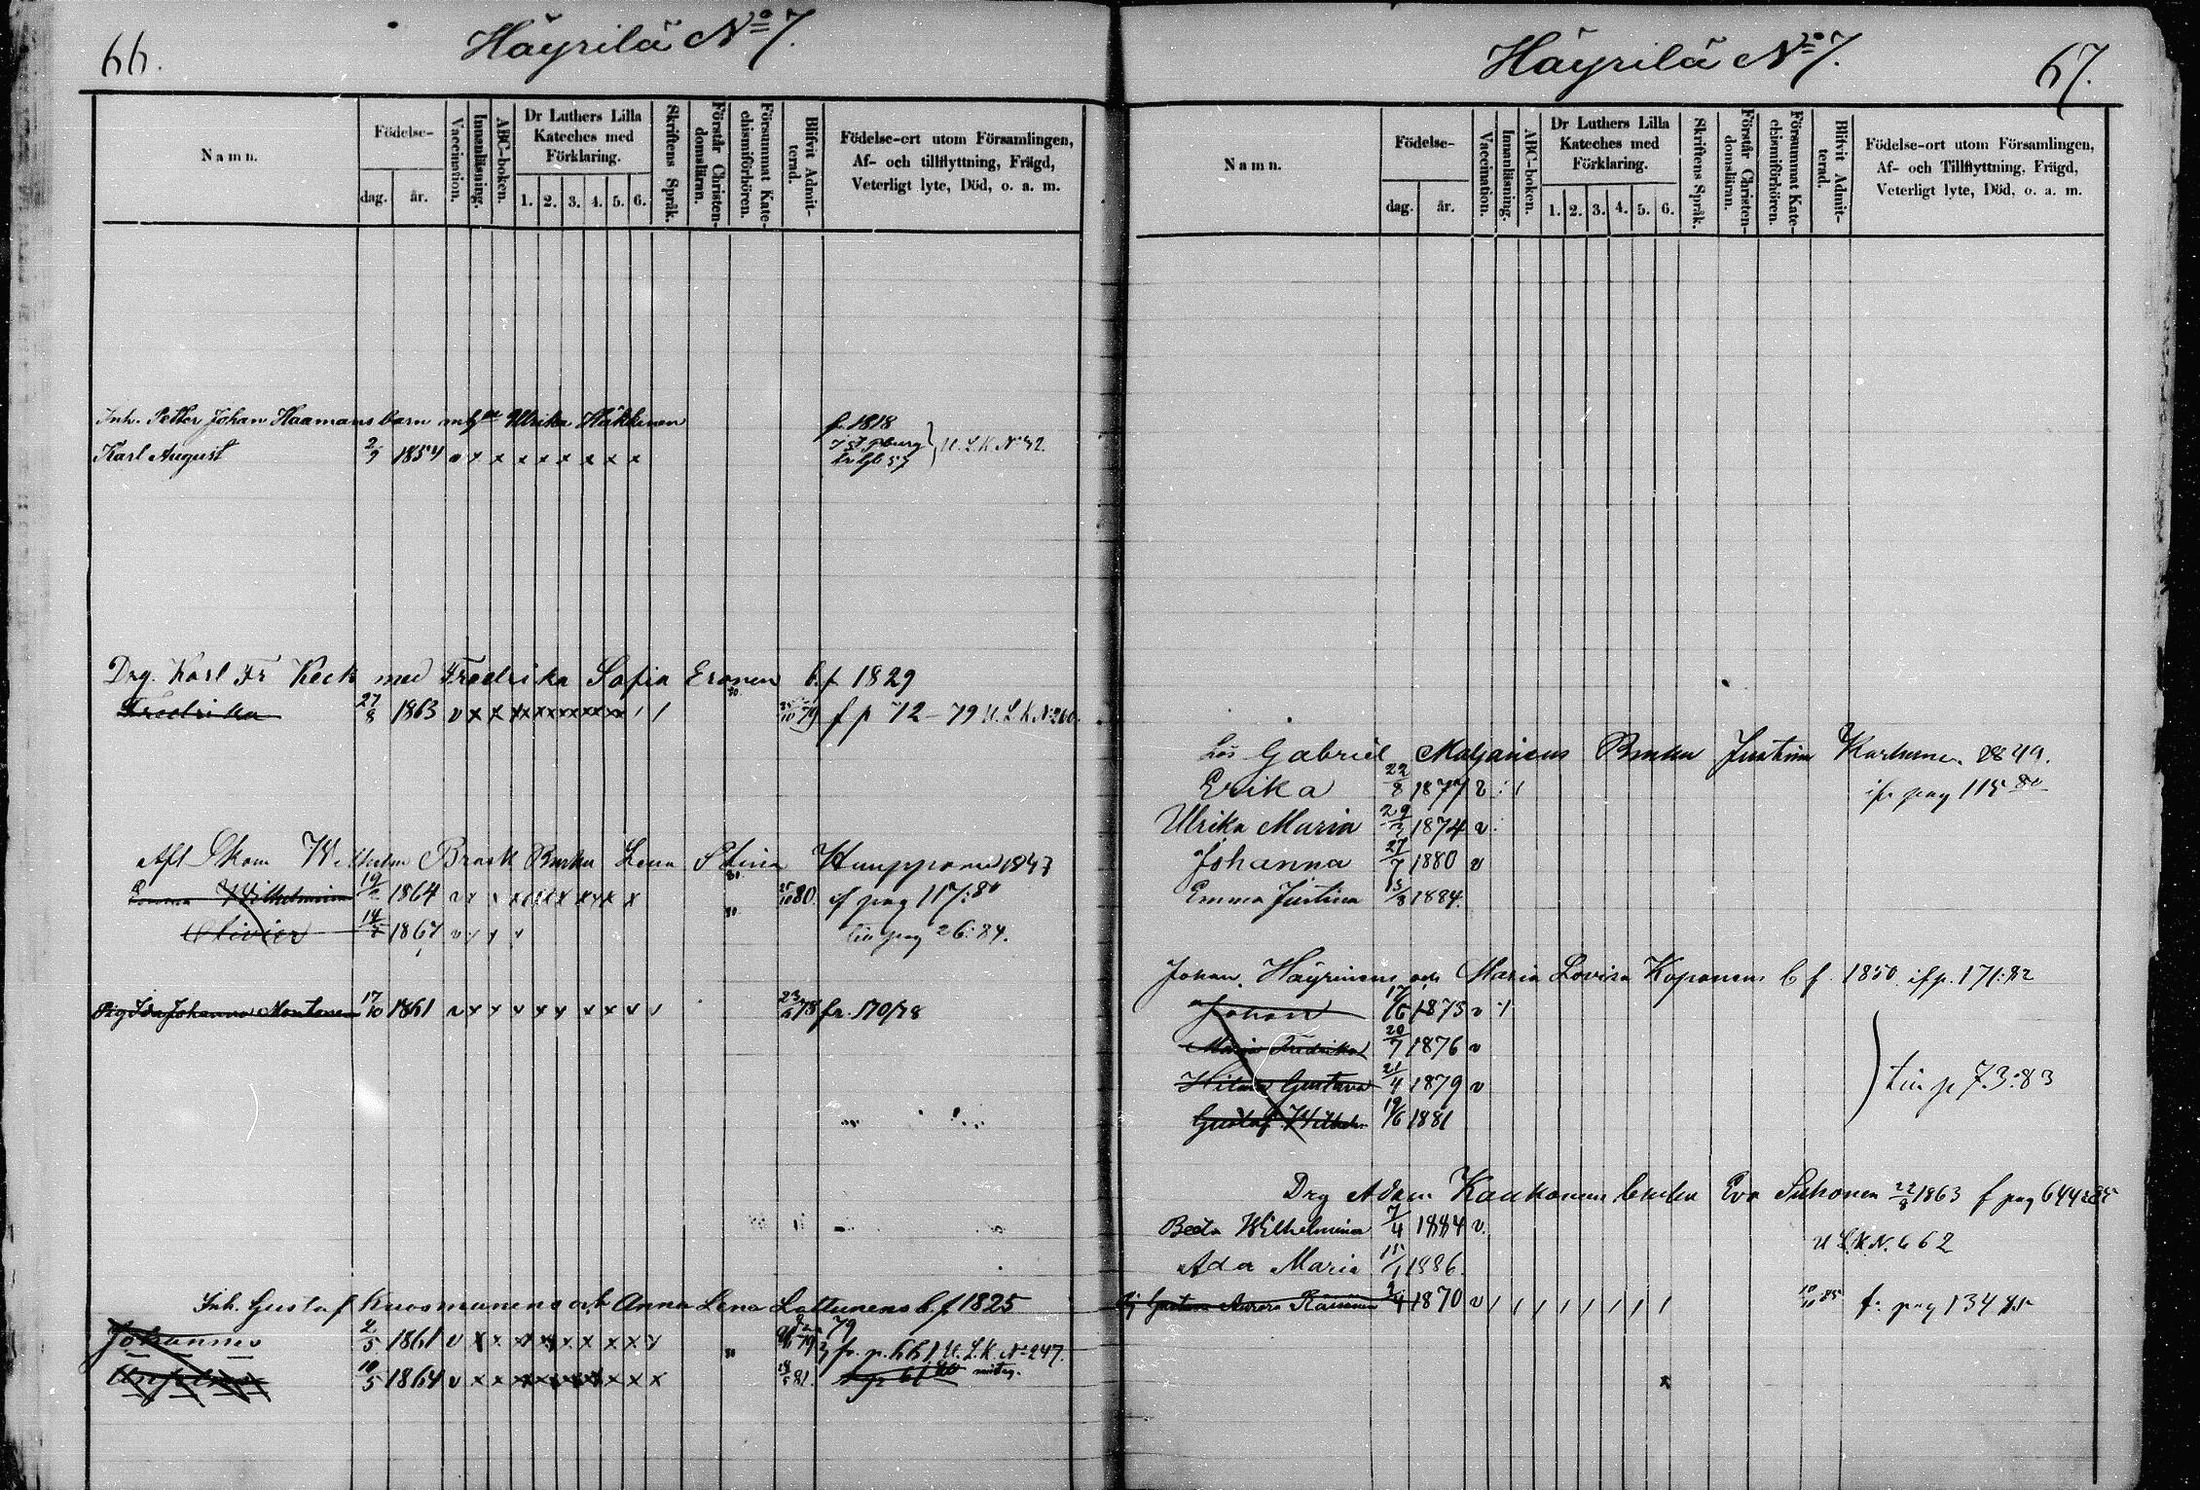 66.
Häyrilä No 7.
Namn.
Födelse-
dag.
år.
Vaccination.
Innanläsning.
ABC-boken.
Dr Luthers Lilla Kateches med Förklaring.
1. 2. 3. 4. 5. 6.
Skriftens Språk.
Förstår Christendomsläran.
Försummat Katechismiförhören.
Blifvit Admitterad.
Födelse-ort utom Församlingen, Af- och tillflyttning, Frägd, Veterligt lyte, Död, o. a. m.
Inh. Petter Johan Haamans barn Ulrika Häkkinen f. 1818
Karl August 2/9 1854 U. L. K. No 42.
Drg. Karl Fr Keck med Fredrika Sofia Eronen b. f 1829
Fredrika 27/8 1863 v x x 25/10 79 f p 72 - 79 U. L. K. No 260.
Afl Skom Wilhelm Brask Enka Lena Stina Humpponen 1847
Emma Wilhelmina 19/2 1864 25/10 80 if pag 117:80
Olivier 1867 till pag 26:84.
Pig Ida Johanna Montonen 17/10 1861 78 fr. 170/78
Inh. Gustaf Kuosmanens o. Anna Lena Lattunens b. f 1825
Johannes 2/5 1861 79 fr. p. 661 U. L. K. No 247.
10/5 1864 81.
Häyrilä No 7.
67.
Namn.
Födelse-
dag.
år.
Vaccination.
Innanläsning.
ABC-boken.
Dr Luthers Lilla Kateches med Förklaring.
1. 2. 3. 4. 5. 6.
Skriftens Språk.
Förstår Christendomsläran.
Försummat Katechismiförhören.
Blifvit Admitterad.
Födelse-ort utom Församlingen, Af- och Tillflyttning, Frägd, Veterligt lyte, Död, o. a. m.
Lös Gabriel Justina 1849.
Erika 22/8 1877 v pag 115 80
Ulrika Maria 1874 v
Johanna 27/7 1880 v
Emma Justina 13/8 1884.
Johan Häyrinens och Maria Lovisa Koponens b f 1850. if p. 171:82
Johan 17/6 1875 v
Maria Fredrika 20/7 1876 v
Hilma Gustava 21/4 1879 v
till p 73:83
Gustaf Wilhelm 19/6 1881
Drg Adam Kaukonen Enka Eva Suhonen 22/8 1863 f pag 644
Beata Wilhelmina 7/4 1884 v.
U L. K N. 662
Ada Maria 15/1 1886.
Gustava Aurora Räsänen 1870 v 10/10 85 fr pag 134